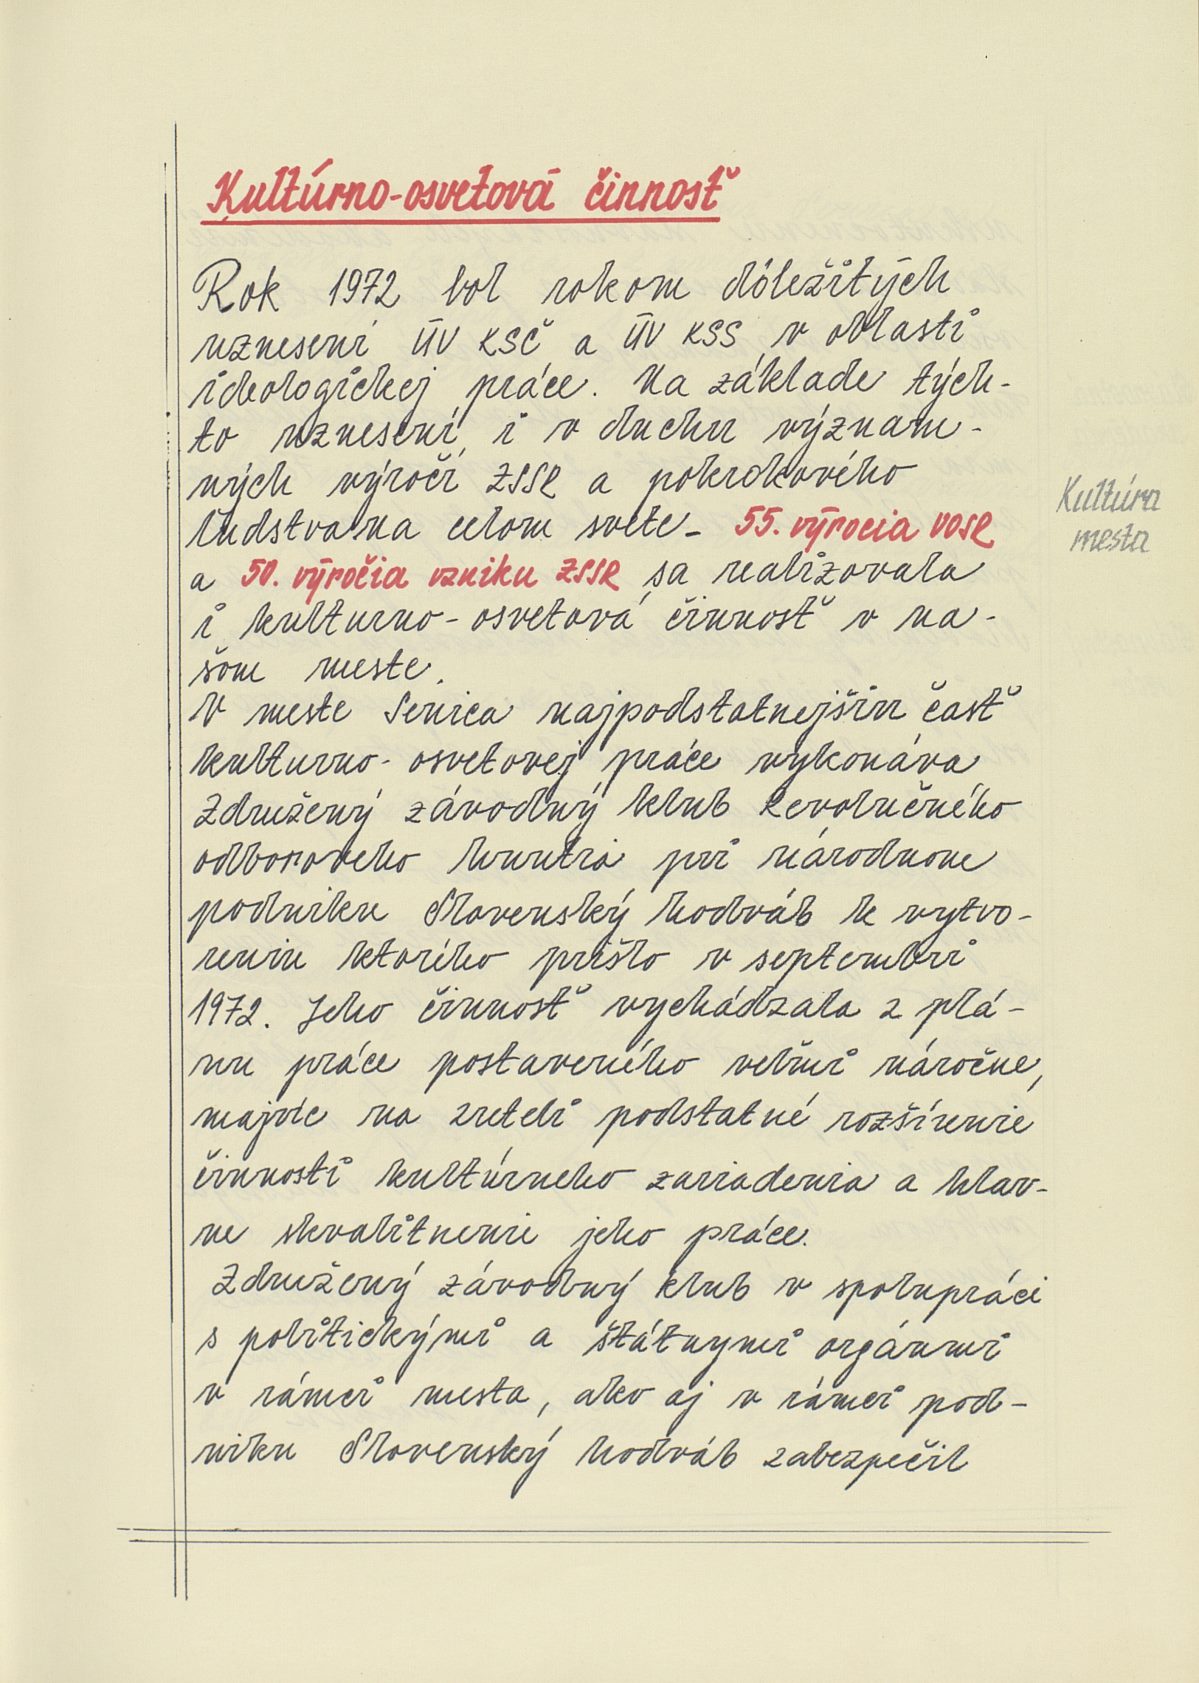 Kultúrno-osvetová činnosť
Rok 1972 bol rokom dôležitých
uznesení ÚV KSČ a ÚV KSS v oblasti
ideologickej práce. Na základe tých-
to uznesení i v duchu význam-
ných výročí ZSSR a pokrokového
ľudstva na celom svete - 55. výrocia VOSR
a 50. výročia vzniku ZSSR sa realizovala
i kulturno-osvetová činnosť v na-
šom meste.
V meste Senica najpodstatnejšiu časť
kulturno-osvetovej práce vykonáva
Združený závodný klub Revolučného
odborového hnutia pri národnom
podniku Slovenský hodváb k vytvo-
reniu ktorého prišlo v septembri
1972. Jeho činnosť vychádzala z plá-
nu práce postaveného veľmi náročne,
majúc na zreteli podstatné rozšírenie
činnosti kultúrneho zariadenia a hlav-
ne skvalitnenie jeho práce.
Združený závodný klub v spolupráci
s politickými a štátnymi orgánmi
v rámci mesta, ako aj v rámci pod-
niku Slovenský hodváb zabezpečil
Kultúra
mesta